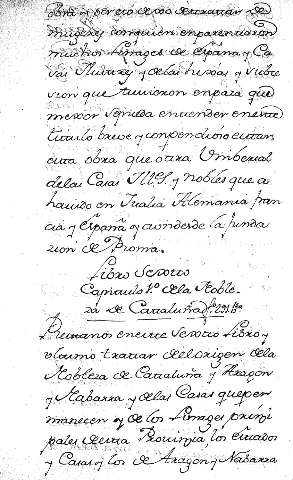 obra y
mugeres con quien emparentaron
muchos Linages de España y Ca
sas Ilustres y de las
sion que tuvieron en para que
mexor se pueda entender en este
titulo breve y conpendioso
esta obra que otra Umbersal
de las Casas Ill.s y nobles que a
havido en Italia Alemania fran
cia y España asi desde la funda
zion de Rroma.
Libro Sesto
Capitulo 1º de la Noble
za de Cattaluña
en este Sesto Libro y
ultimo trattar del origen de la
Nobleza de Cattaluña y Aragon
y Nabarra y de las Casas que per
manecen y de los Linages prinzi
pales de esta Provinzia, los
y Casas y los de Aragon y Nabarra